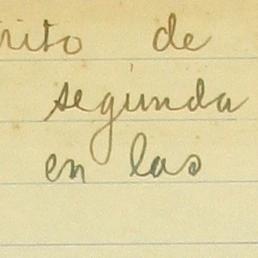 rito de
segunda
en las